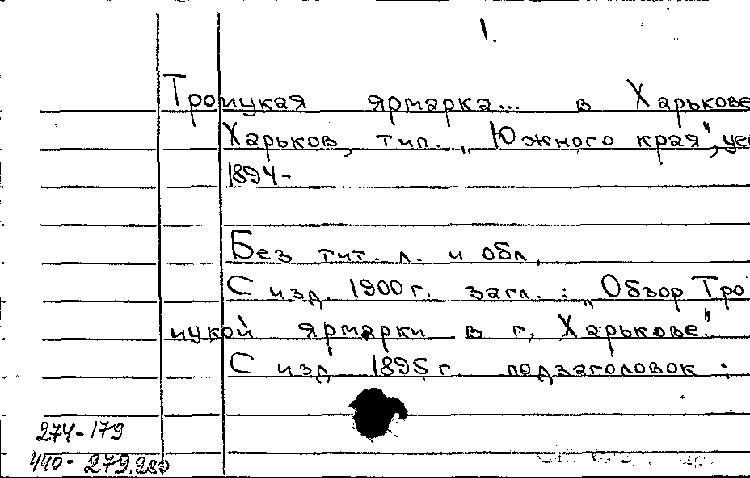 1.
Троицкая ярмарка... в Харькове
Харьков, тип. „Южного края",
1894-
Без тит. л. и обл.
С изд. 1900 г. загл.: „Обзор Тро
ицкой ярмарки в г. Харькове"
С изд 1895 г. подзаголовок:
274-179
440-279.280